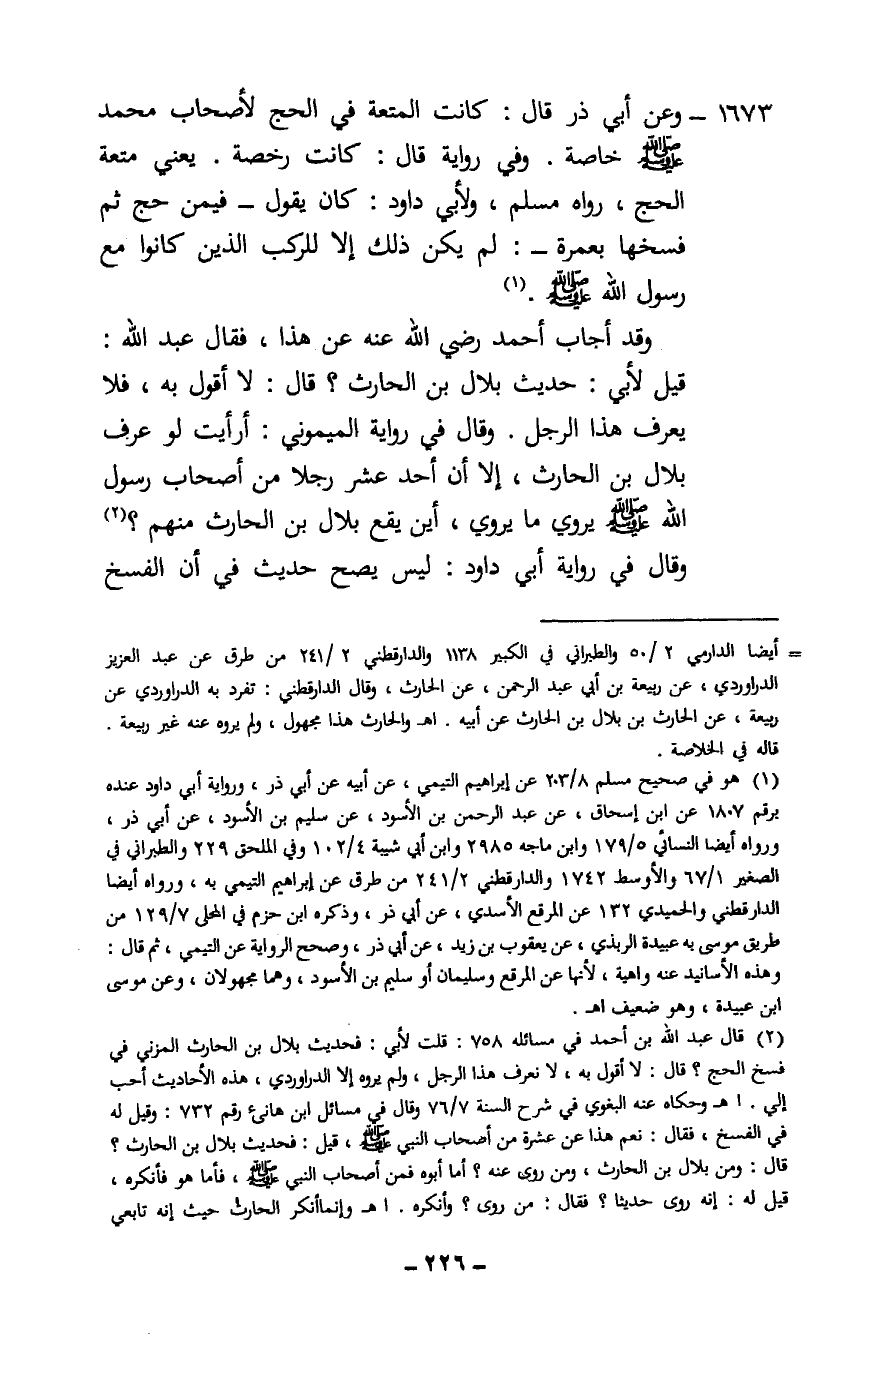 ١٦٧٣ ــ وعن أبي ذر قال : كانت المتعة في الحج لأصحاب محمد
ﷺ خاصة . وفي رواية قال : كانت رخصة . يعني متعة
الحج ، رواه مسلم ، ولأبي داود : كان يقول ــ فيمن حج ثم
فسخها بعمرة ــ : لم يكن ذلك إلا للركب الذين كانوا مع
رسول الله ﷺ .(١)
وقد أجاب أحمد رضي الله عنه عن هذا ، فقال عبد الله :
قيل لأبي : حديث بلال بن الحارث ؟ قال : لا أقول به ، فلا
يعرف هذا الرجل . وقال في رواية الميموني : أرأيت لو عرف
بلال بن الحارث ، إلا أن أحد عشر رجلا من أصحاب رسول
الله ﷺ يروي ما يروي ، أين يقع بلال بن الحارث منهم ؟(٢)
وقال في رواية أبي داود : ليس يصح حديث في أن الفسخ
= أيضا الدارمي ٢ /٥٠ والطبراني في الكبير ١١٣٨ والدارقطني ٢ /٢٤١ من طرق عن عبد العزيز
الدراوردي ، عن ربيعة بن أبي عبد الرحمن ، عن الحارث ، وقال الدارقطني : تفرد به الدراوردي عن
ربيعة ، عن الحارث بن بلال بن الحارث عن أبيه . اهـ والحارث هذا مجهول ، ولم يروه عنه غير ربيعة .
قاله في الخلاصة .
(١) هو في صحيح مسلم ٢٠٣/٨ عن إبراهيم التيمي ، عن أبيه عن أبي ذر ، ورواية أبي داود عنده
برقم ١٨٠٧ عن ابن إسحاق ، عن عبد الرحمن بن الأسود ، عن سليم بن الأسود ، عن أبي ذر ،
ورواه أيضا النسائي ١٧٩/٥ وابن ماجه ٢٩٨٥ وابن أبي شيبة ١٠٢/٤ وفي الملحق ٢٢٩ والطبراني في
الصغير ٦٧/١ والأوسط ١٧٤٢ والدارقطني ٢٤١/٢ من طرق عن إبراهيم التيمي به ، ورواه أيضا
الدارقطني والحميدي ١٣٢ عن المرقع الأسدي ، عن أبي ذر ، وذكره ابن حزم في المحلى ١٢٩/٧ من
طريق موسى به عبيدة الربذي ، عن يعقوب بن زيد ، عن أبي ذر ، وصحح الرواية عن التيمي ، ثم قال :
وهذه الأسانيد عنه واهية ، لأنها عن المرقع وسليمان أو سليم بن الأسود ، وهما مجهولان ، وعن موسى
ابن عبيدة ، وهو ضعيف اهـ .
(٢) قال عبد الله بن أحمد في مسائله ٧٥٨ : قلت لأبي : فحديث بلال بن الحارث المزني في
فسخ الحج ؟ قال : لا أقول به ، لا نعرف هذا الرجل ، ولم يروه إلا الدراوردي ، هذه الأحاديث أحب
إلي . ا هـ وحكاه عنه البغوي في شرح السنة ٧٦/٧ وقال في مسائل ابن هانئ رقم ٧٣٢ : وقيل له
في الفسخ ، فقال : نعم هذا عن عشرة من أصحاب النبي ﷺ ، قيل : فحديث بلال بن الحارث ؟
قال : ومن بلال بن الحارث ، ومن روى عنه ؟ أما أبوه فمن أصحاب النبي ﷺ ، فأما هو فأنكره ،
قيل له : إنه روى حديثا ؟ فقال : من روى ؟ وأنكره . ا هـ وإنماأنكر الحارث حيث إنه تابعي
ــ ٢٢٦ ــ